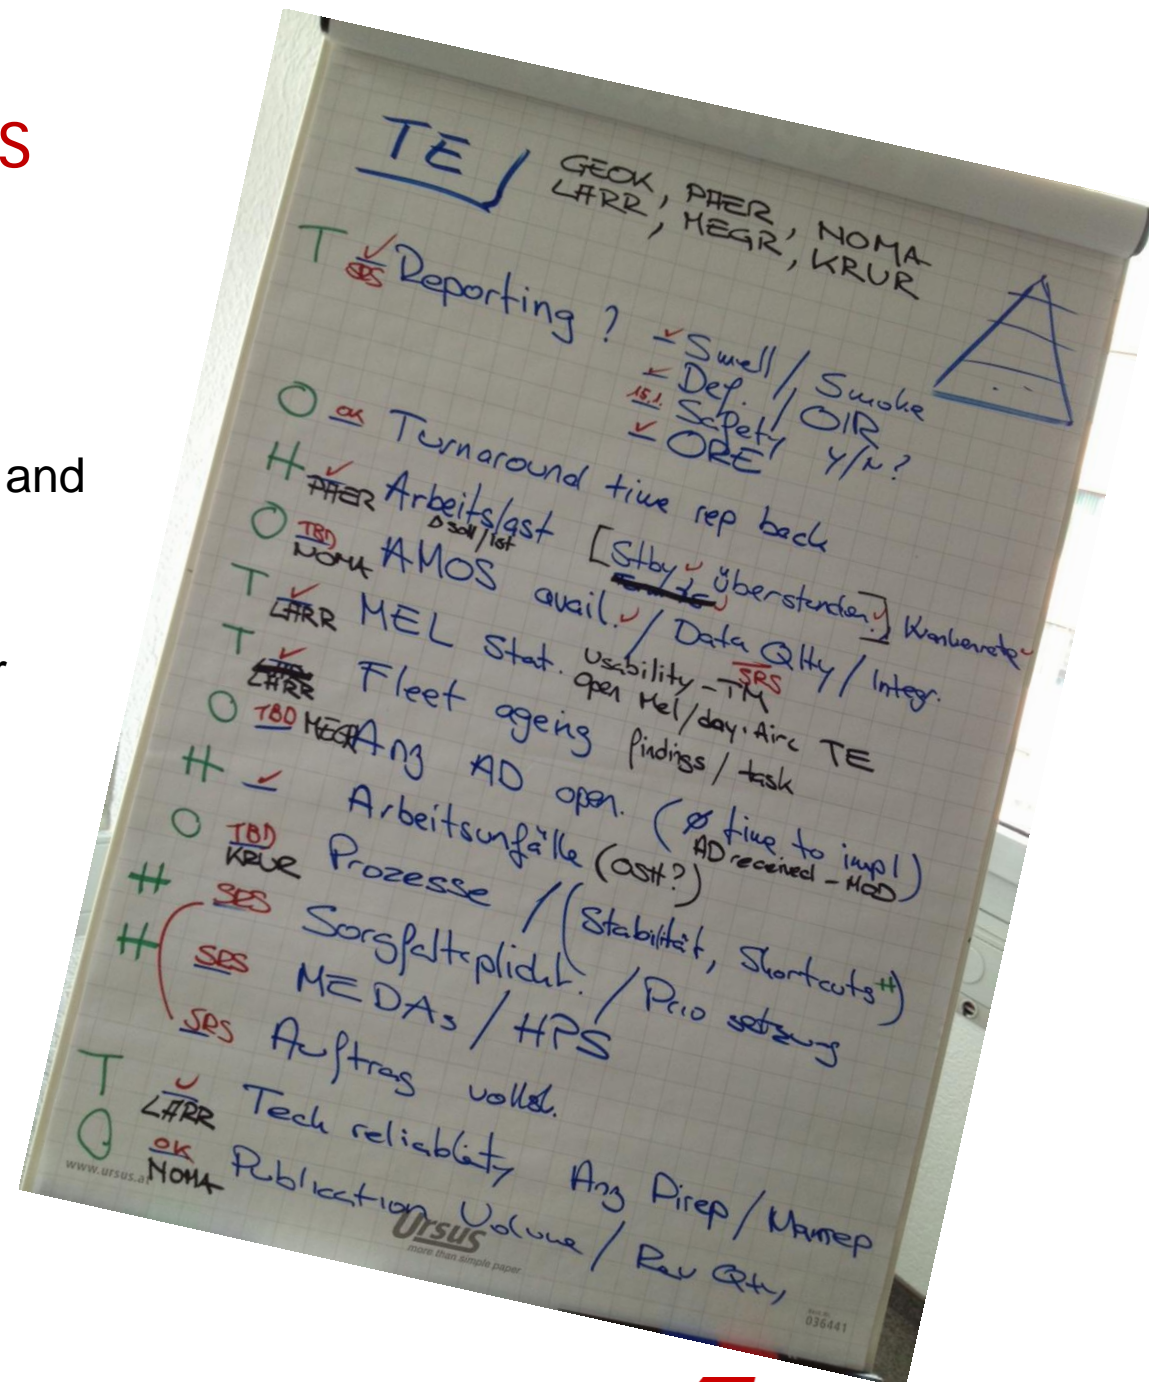 s
and
TE / GEOK, PAER, NOMA
LARR, MEGR, KRUR
T ✓ SRS Reporting ? ✓ Smell / Smoke
✓ Def. / OIR
15.1. Safety Y/N?
✓ ORE
O OK Turnaround time rep back
H ✓ PAER Arbeitslast [Stby ✓, Überstunden ✓] Krankenrate ✓
Δ soll/ist
O TBD NOMA AMOS avail. ✓ / Data Qlty / Integr.
SRS
T ✓ LARR MEL Stat. Usability - TM
open Mel/day. Airc TE
T ✓ LARR Fleet ageing findings / task
O TBD MEGR Anz AD open. (Ø time to impl)
AD received - MOD
H ✓ Arbeitsunfälle (OSH?)
O TBD KRUR Prozesse / (Stabilität, Shortcuts H)
H SRS Sorgfaltspflicht. / Prio setzung
H SRS MEDAs / HPS
SRS Auftrag vollst.
T ✓ LARR Tech reliability Anz Pirep / Marep
O OK NOMA Publication Volume / Rev Qty
www.ursus.at
Ursus
more than simple paper
036441